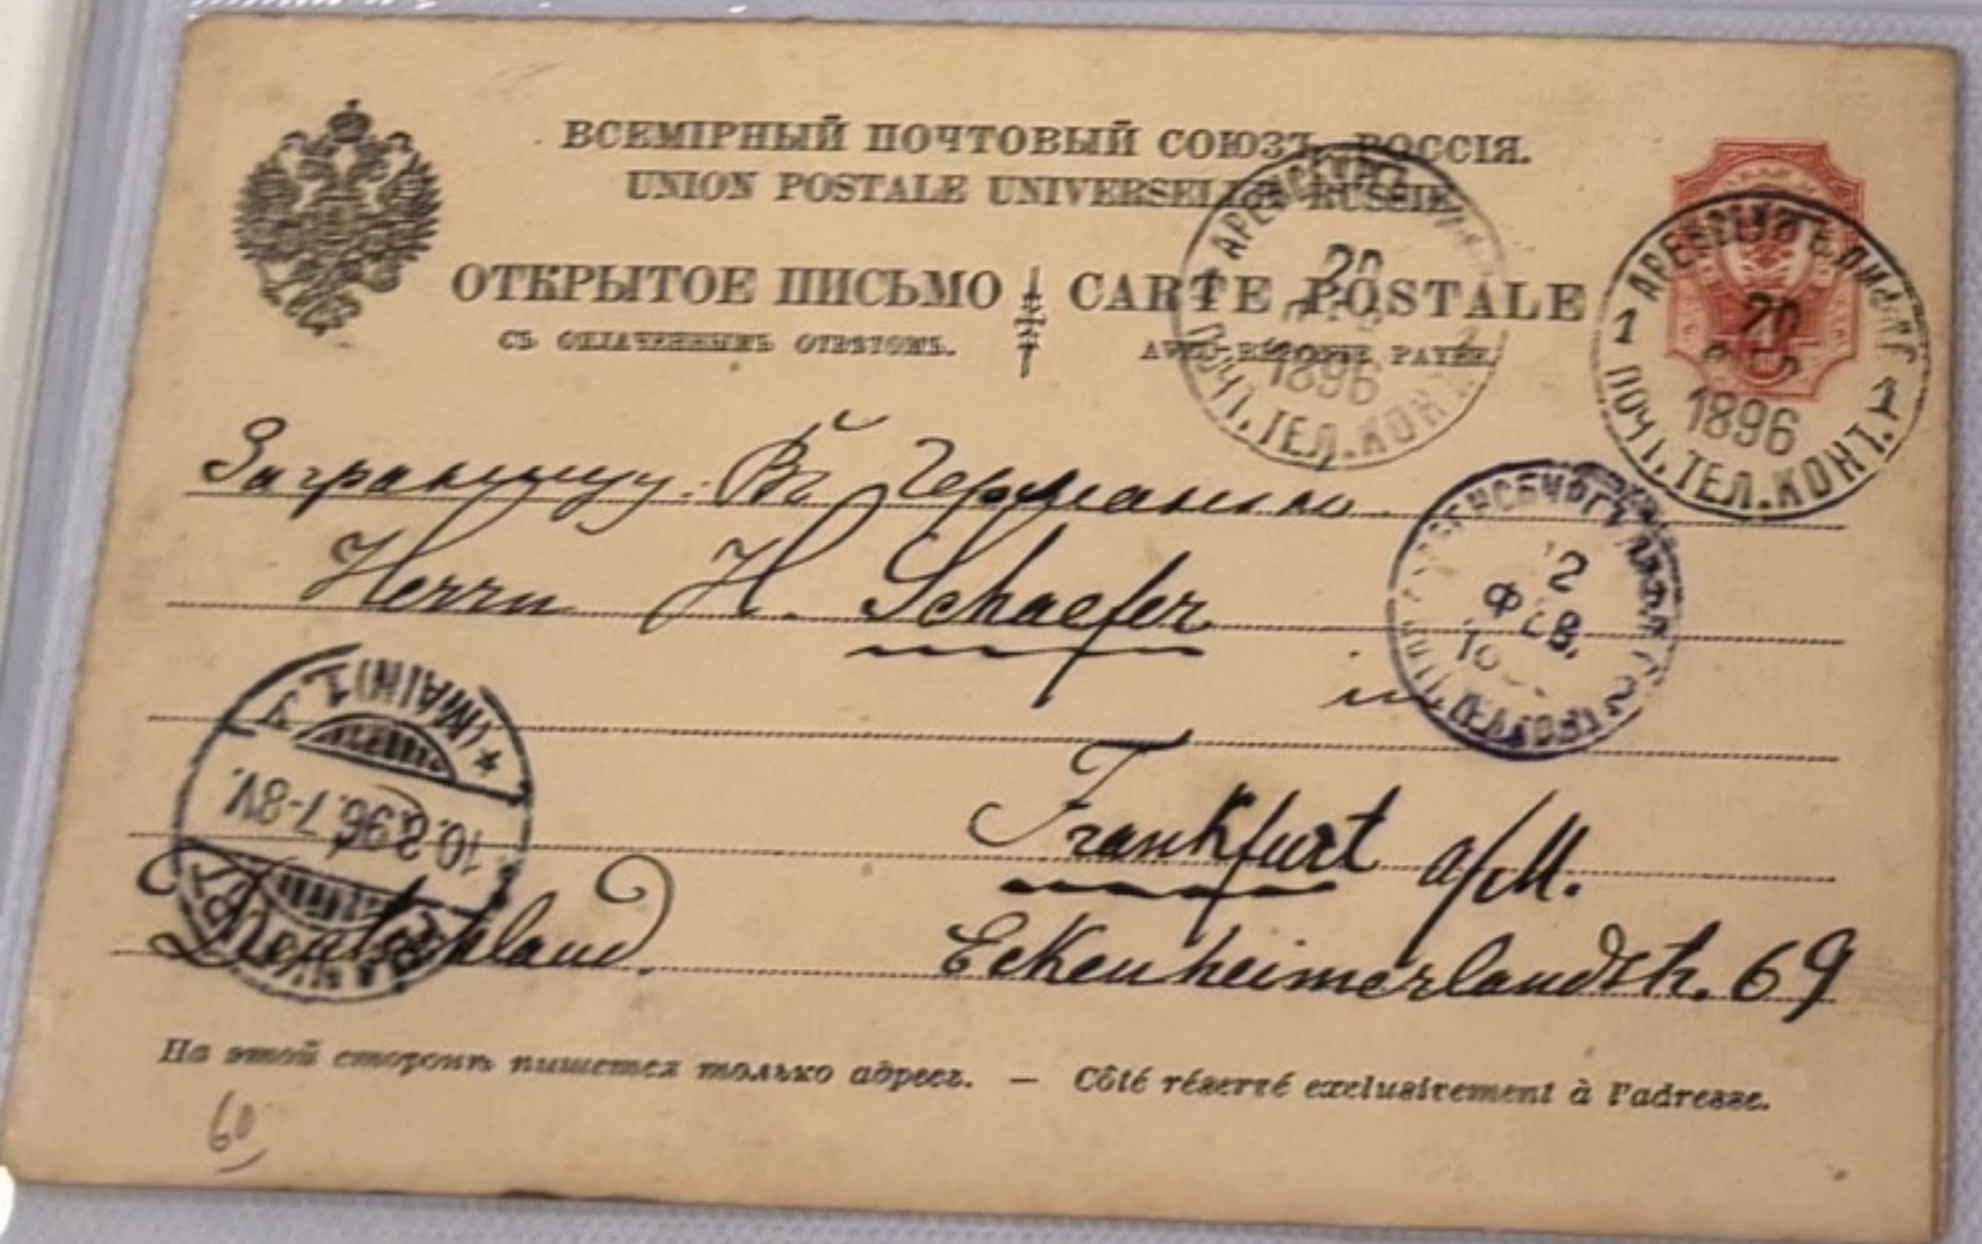 ВСЕМІРНЫЙ ПОЧТОВЫЙ СОЮЗЪ. РОССІЯ.
UNION POSTALE UNIVERSELLE. RUSSIE.
ОТКРЫТОЕ ПИСЬМО
СЪ ОПЛАЧЕННЫМЪ ОТВѢТОМЪ.
CARTE POSTALE
AVEC RÉPONSE PAYÉE.
АРЕНСБУРГЪ
20
1896
ПОЧТ. ТЕЛ. КОНТ.
АРЕНСБУРГЪ ЛИФЛ. Г.
1 1
20
1896
ПОЧТ. ТЕЛ. КОНТ.
Заграницу. Въ Германію.
Herrn H. Schaefer
in
АРЕНСБУРГЪ ЛИФЛ. Г.
2
ФЕВ.
Frankfurt a/M.
Deutschland.
Eckenheimerlandstr. 69
FRANKFURT
(MAIN) 1.
96.7-8V.
На этой сторонѣ пишется только адресъ. — Côté réservé exclusivement à l'adresse.
60